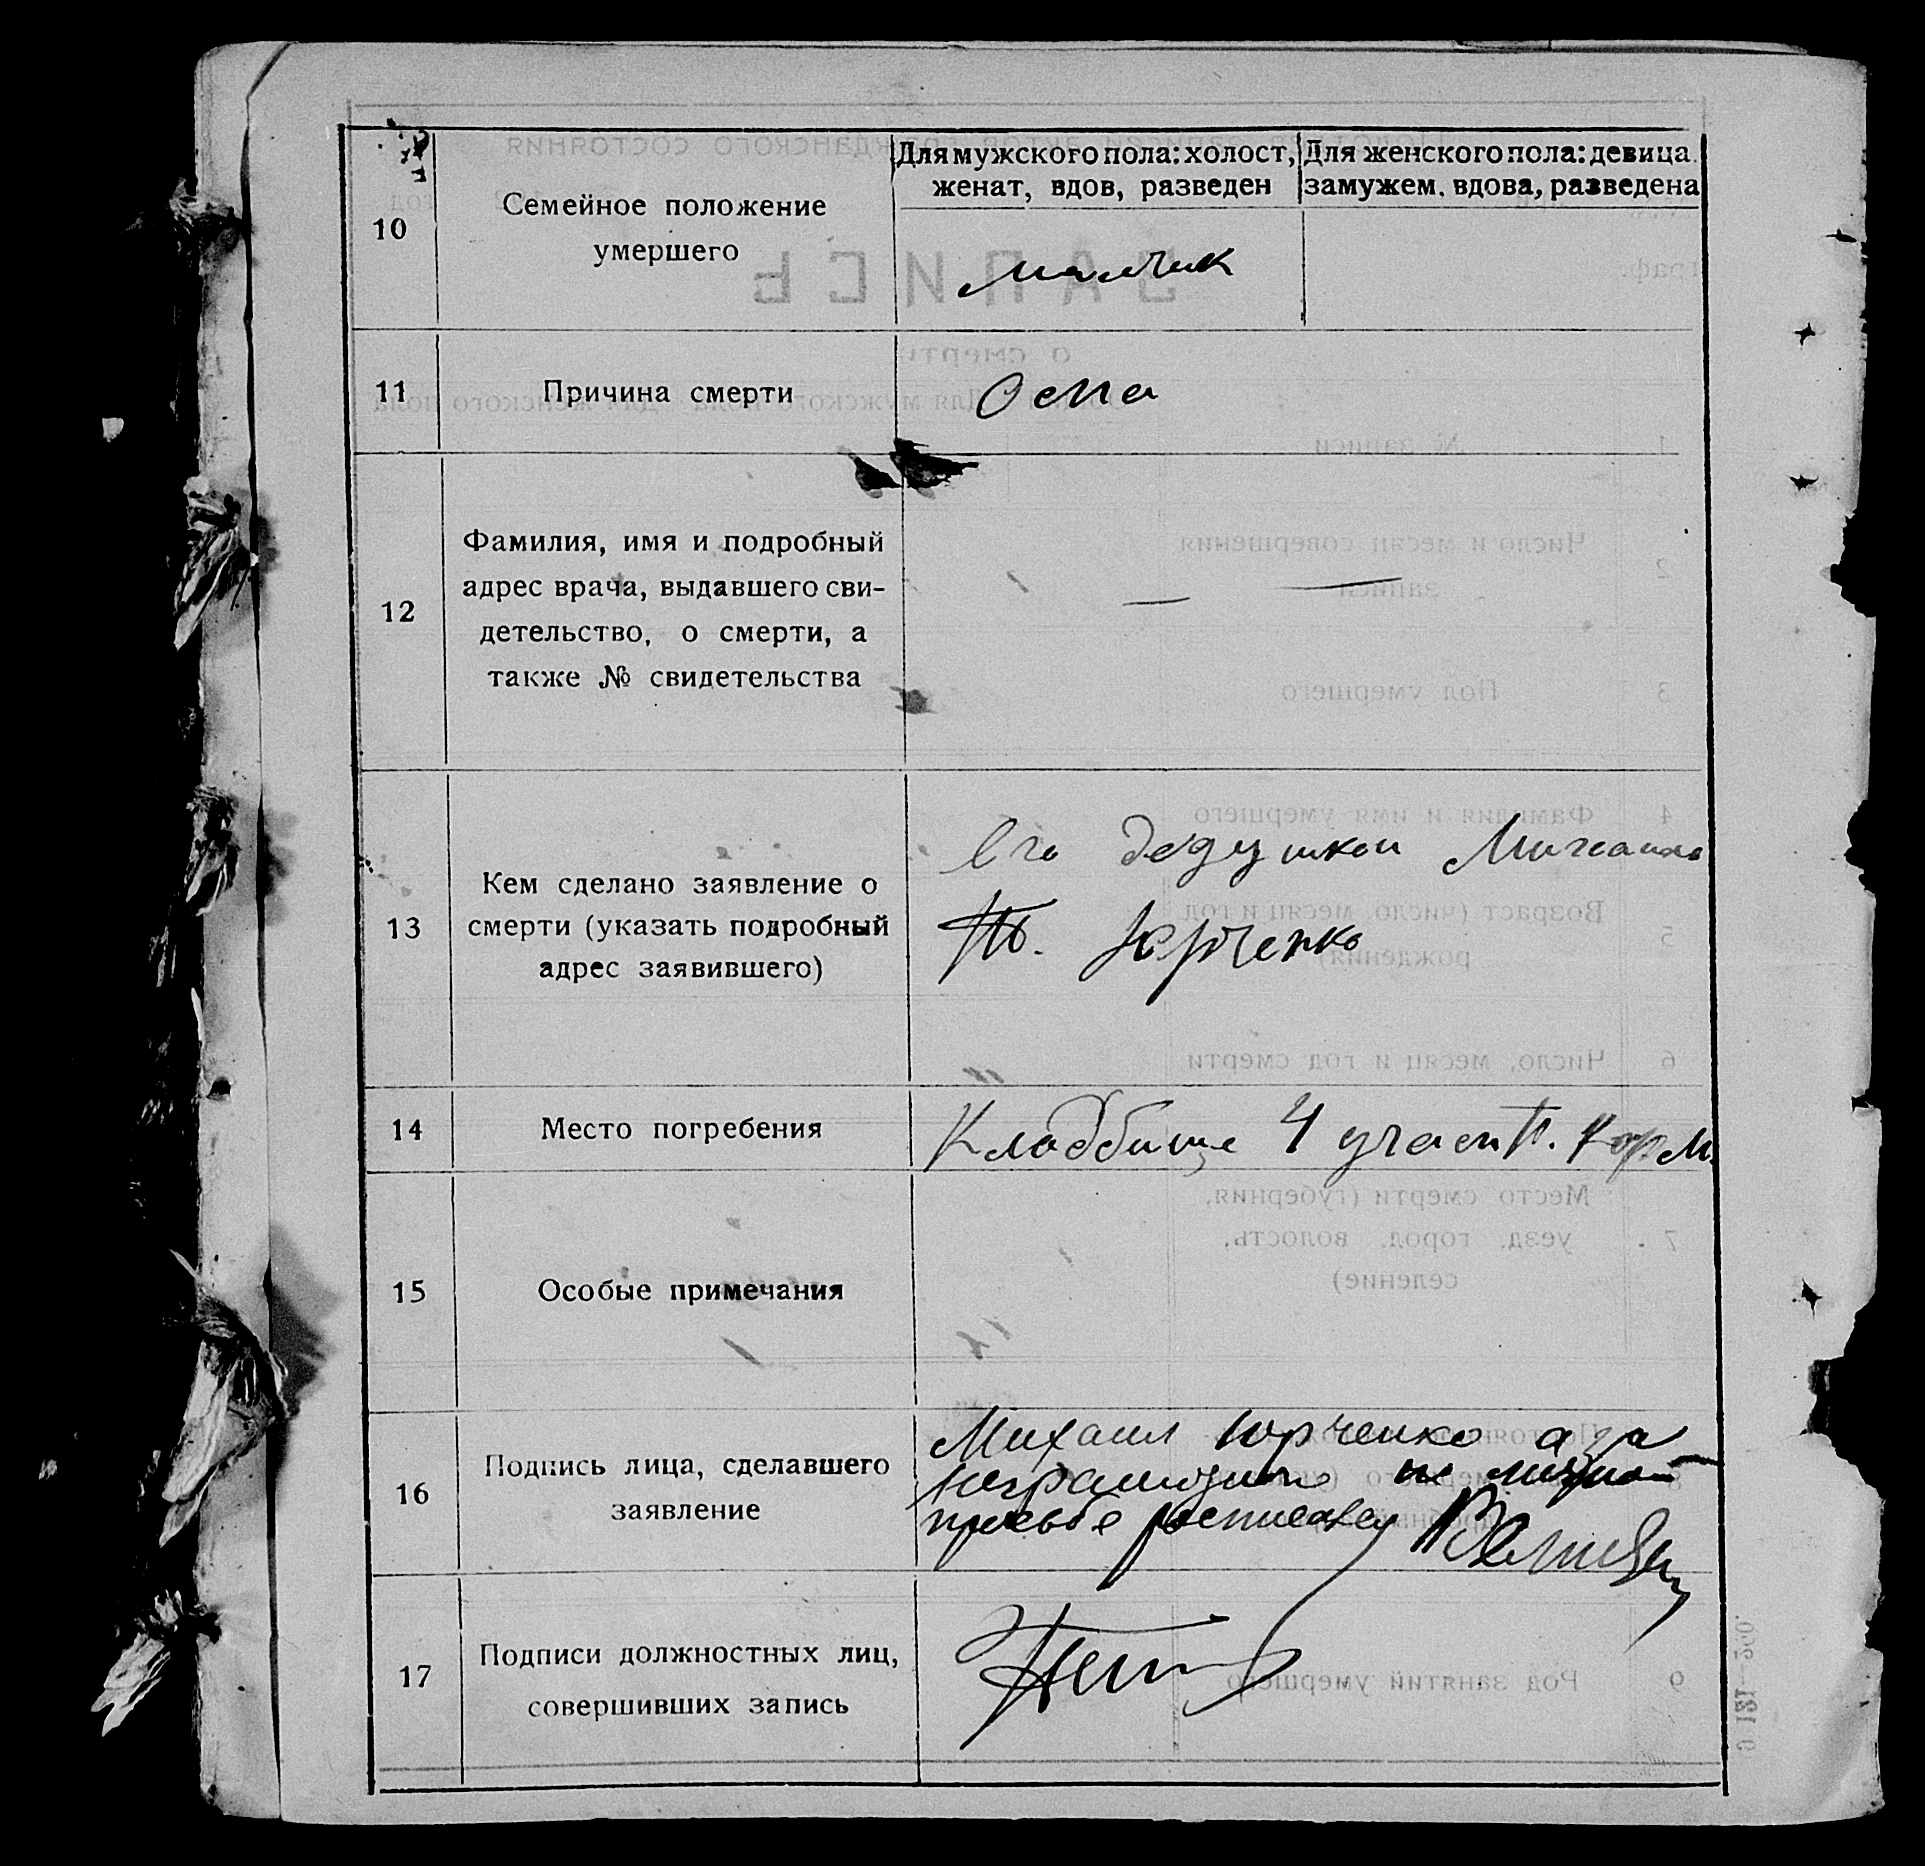 10
Семейное положение
умершего
Для мужского пола: холост,
женат, вдов, разведен
Для женского пола: девица
замужем. вдова, разведена
малчик
11
Причина смерти
Оспа
12
Фамилия, имя и подробный
адрес врача, выдавшего сви-
детельство, о смерти, а
также № свидетельства
— —
13
Кем сделано заявление о
смерти (указать подробный
адрес заявившего)
Его дедушкой Михаило
Юрченко
14
Место погребения
Кладбище 4 участ. Кор. М.
15
Особые примечания
16
Подпись лица, сделавшего
заявление
Михаил Юрченко а за
неграмотного личной
просьбе росписавсу
17
Подписи должностных лиц,
совершивших запись